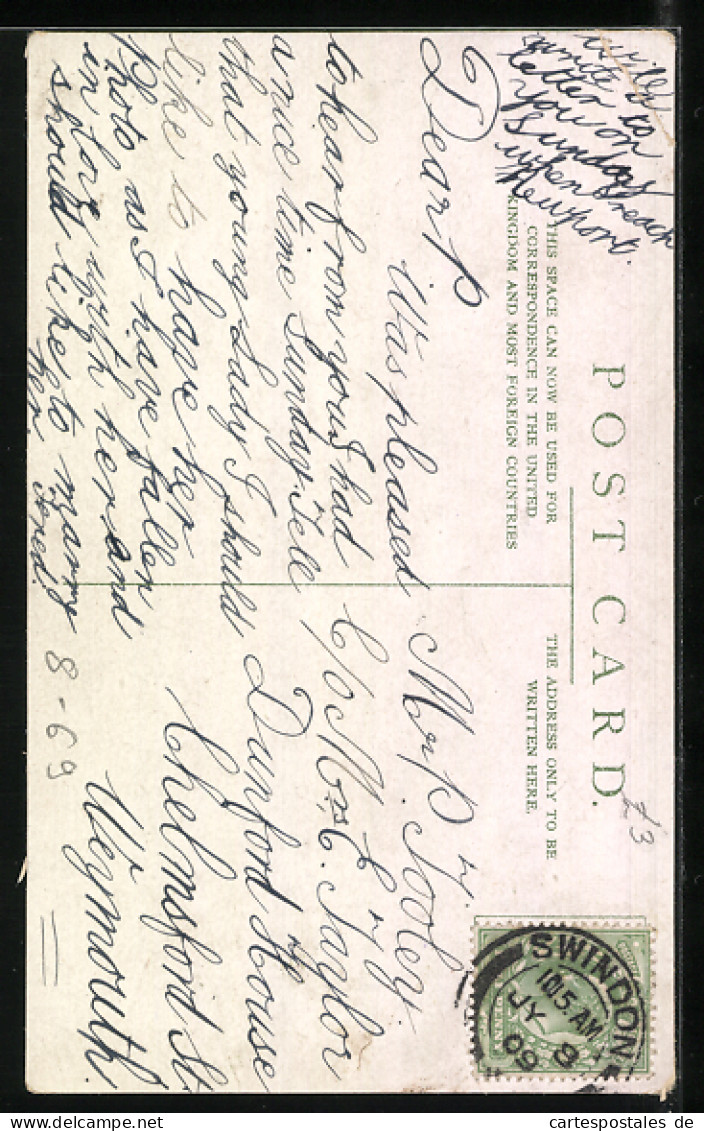 will
write a
letter to
you on
Sunday
when I reach
Newport.
POST CARD.
THIS SPACE CAN NOW BE USED FOR
CORRESPONDENCE IN THE UNITED
KINGDOM AND MOST FOREIGN COUNTRIES
THE ADDRESS ONLY TO BE
WRITTEN HERE.
Dear P
Was pleased
to hear from you & had
a nice time Sunday. Tell
that young Lady I should
like to have her
Photo as I have fallen
in love with her and
should like to marry
her
Fred.
Mr P. Tooley
C/o Mrs E. Taylor
Dunford House
Chelmsford St
Weymouth
8-69
£3
SWINDON
10.15 AM
JY 8
09
www.cartespostales.de